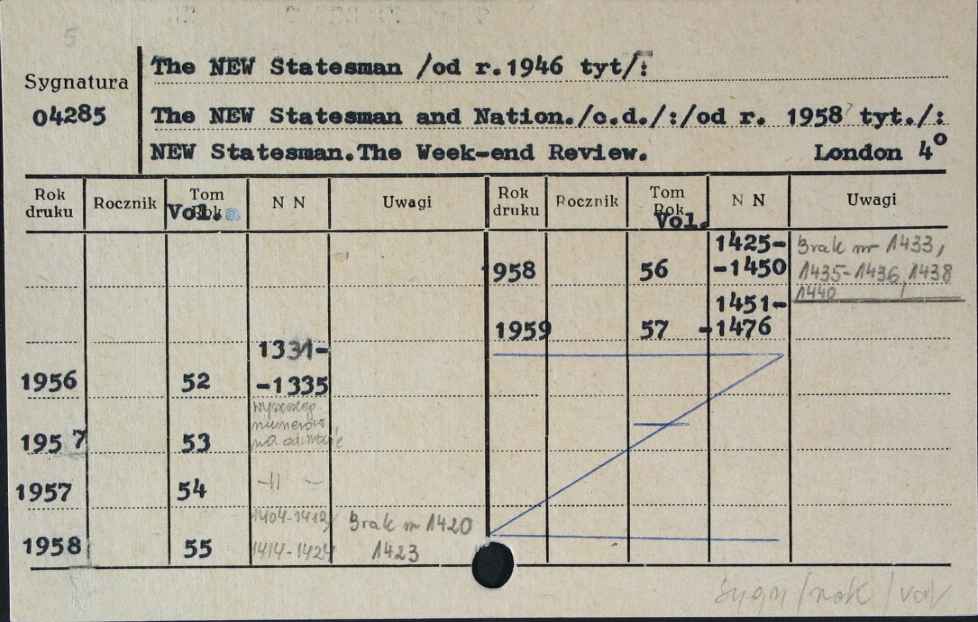 5
The NEW Statesman /od r.1946 tyt/:
Sygnatura
04285
The NEW Statesman and Nation./c.d./:/od r. 1958 tyt./:
NEW Statesman.The Week-end Review. London 4°
Rok druku Rocznik Tom Rok Vol. N N Uwagi Rok druku Rocznik Tom Rok Vol. N N Uwagi
1956 52 1331-
-1335
1957 53 numerów
1957 54 -11 -
1958 55 1404-1413
1414-1424 Brak nr 1420
1423
1958 56 1425-
-1450 Brak nr 1433,
1435-1436, 1438
1440
1959 57 1451-
-1476
Sygn/rok/vol